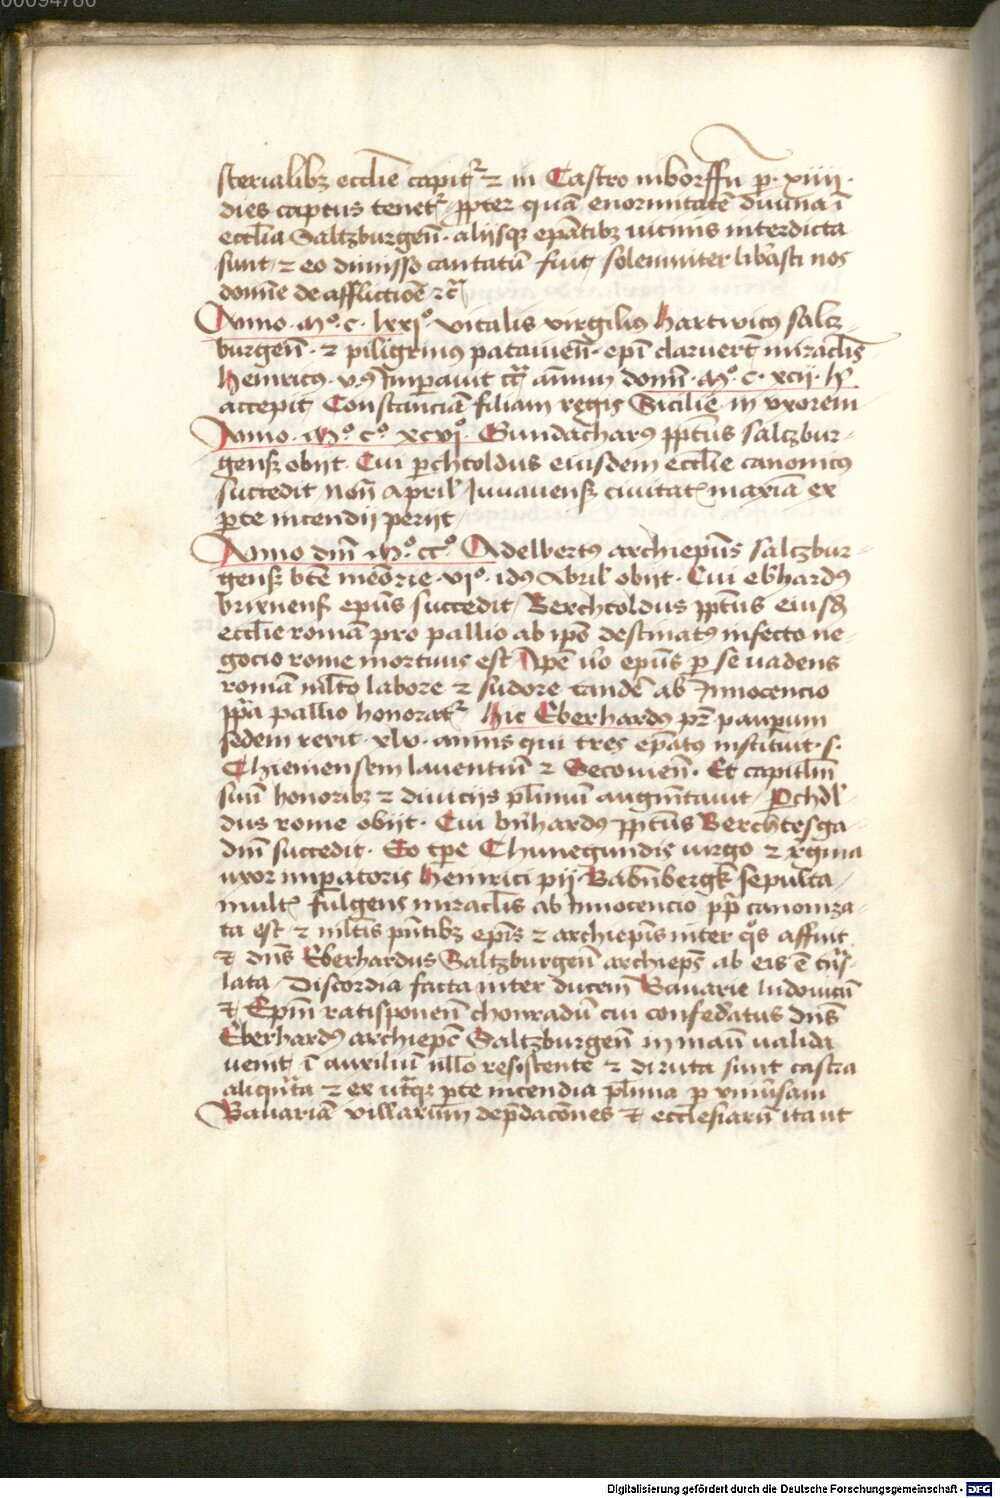 00094780
sterialibz ecclie capit᷑ ⁊ in Castro niborffn̄ p̱. xiiij.
dies captus tenet᷑ ꝓpter quā enormitatē diuina ī
ecclīa Saltzburgen̄. alijsqꝫ epātibz uicinis interdicta
sunt, ⁊ eo dimisso cantatū fuit, solemniter libāsti nos
domīe de afflictiōe ⁊c̄
Anno. Mͦ. c. lxxjͦ. vitalis virgiliꝯ hartwicꝯ salcz-
burgen̄. ⁊ piligrinꝯ patauien̄. epī claruer̄t miraclīs
heinricꝯ. vꝯ Imꝑauit ... annum domī. Mͦ. c. xcij. hic
accepit Constanciā filiam regis Sicilie in vxorem
Anno. Mͦ. cͦ. xcvjͦ. Gundacharꝯ ꝓptūs salczbur-
genẜ obijt. Cui ꝑchtoldus eiusdem ecclīe canonicꝯ
succedit, Non̄ April̄ Juuauenẜ ciuitat᷑ maxīa ex
ꝑte incendij perijt,
Anno dn̄i Mͦ. ccͦ. Adelbertꝯ archiepūs saltzbur-
genẜ btē meōrie. vjͦ. idꝯ Abril̄ obijt. Cui eb̄hardꝯ
brixnenẜ epūs succedit, Berchtoldus ꝓptūs eiusd̄
ecclīe romā pro pallio ab ip̄o destinatꝯ infecto ne-
gocio rome mortuus est Ip̄e v̄o epūs ꝑ se uadens
romā mlto labore ⁊ sudore tandē ab Innocencio
pp̄a pallio honorat᷑. hic Eberhardꝯ pr̄ pauꝑum
sedem rexit. xlv. annis qui tres ep̄atꝯ instituit. s.
Chiemensem lauentinū ⁊ Secouien̄. Et capitlm̄
suū honoribz ⁊ diuicijs pl̄imum augm̄tauit, ꝑchdl̄-
dus rome obijt. Cui bn̄hardꝯ ꝓptūs Berchtesga-
dm̄ succedit. Eo tꝑe Chunegundis uirgo ⁊ r̄gina
uxor imꝑatoris heinrici pij Babn̄bergk̄ sepulta,
mult᷑ fulgens miraclīs ab Innocencio pp̄ canoniza-
ta est, ⁊ mltīs pn̄tibz epīs ⁊ archiepīs inter qͦs affuit
⁊ dn̄s Eberhardus Saltzburgen̄ archiep̄s ab eis ē tn̄s-
lata, Discordia facta inter ducem Bauarie ludouicū
⁊ Epm̄ ratisponen̄ chonradū cui confed̄atus dn̄s
Eberhardꝯ archiepc̄ Saltzburgen̄ in manū valida
uenit, ī auxiliū nllo resistente ⁊ diruta sunt castra
aliqn̄ta ⁊ ex utꝰqꝫ ꝑte incendia pl̄ima ꝑ vniūsam
Bauariā villarum depd̄acōnes ⁊ ecclesiarū ita ut
Digitalisierung gefördert durch die Deutsche Forschungsgemeinschaft - DFG